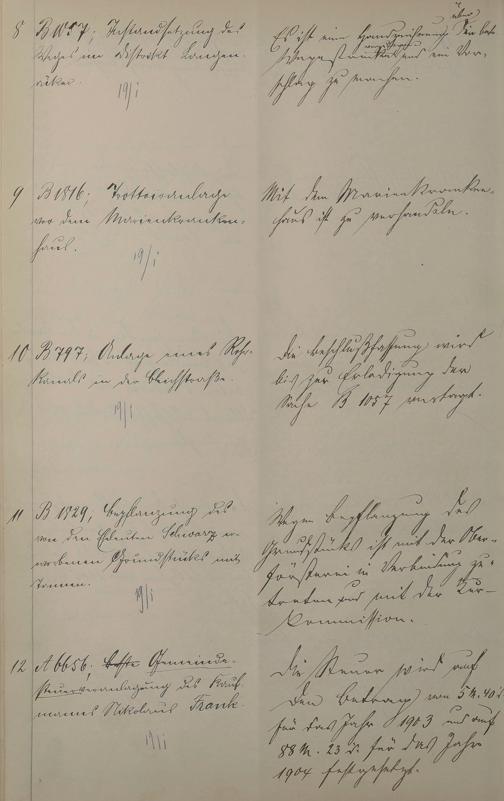 8 B 1057; Instandsetzung des
Weges im Distrikt Langen-
äcker.
19/i
Es ist eine Handzeichnung über
den
angefertigt und ein Vor-
schlag zu machen.
9 B 1816; Trottoiranlage
vor dem Marienkranken-
haus.
19/i
Mit dem Marienkranken-
haus ist zu verhandeln.
10 B 797; Anlage eines Rohr-
kanals in der Bleichstraße.
19/i
Die Beschlußfassung wird
bis zur Erledigung der
Sache B 1057 vertagt.
11 B 1829; Bepflanzung des
von den Eheleuten Schwarz er-
worbenen Grundstücks mit
Tannen.
19/i
Wegen Bepflanzung des
Grundstücks ist mit der Ober-
försterei in Verbindung zu
treten und mit der Kur-
Commission.
12 A 6656; Gemeinde-
steuerveranlagung des Kauf-
manns Nikolaus Frank.
19/i
Die Steuer wird auf
den Betrag von 5 M. 40 d
für das Jahr 1903 und auf
88 M. 23 d. für das Jahr
1904 festgesetzt.